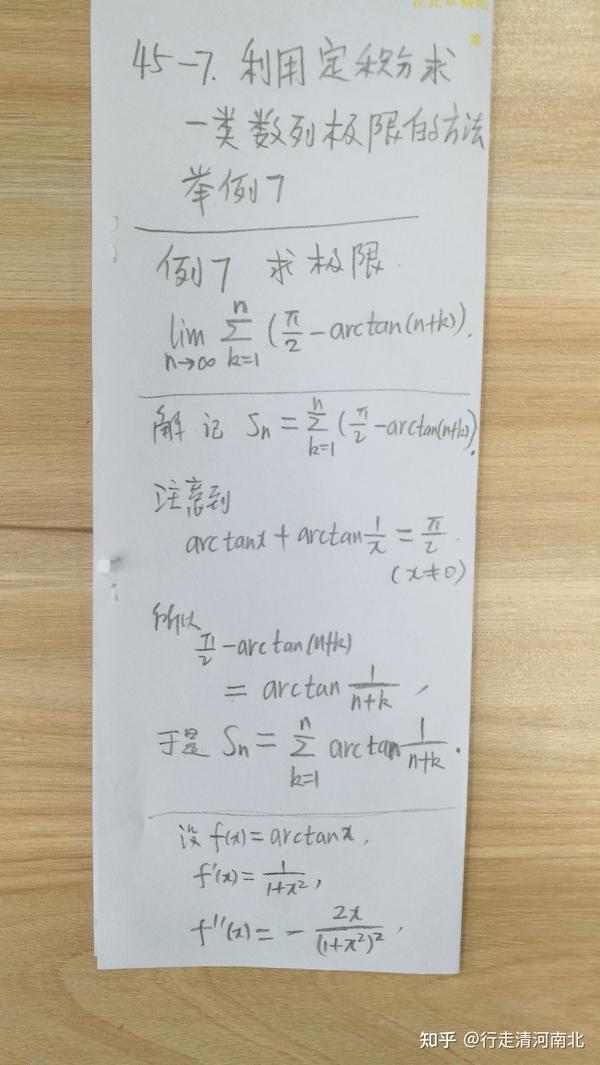 在此草稿纸
第
45-7. 利用定积分求
一类数列极限的方法
举例7
例7 求极限.
lim_{n→∞} ∑_{k=1}^{n} (π/2 - arctan(n+k)).
解. 记 Sn = ∑_{k=1}^{n} (π/2 - arctan(n+k)).
注意到
arctanx + arctan 1/x = π/2.
(x≠0)
所以
π/2 - arctan(n+k)
= arctan 1/(n+k),
于是 Sn = ∑_{k=1}^{n} arctan 1/(n+k).
设 f(x) = arctanx,
f'(x) = 1/(1+x²),
f''(x) = - 2x/(1+x²)²,
知乎 @行走清河南北